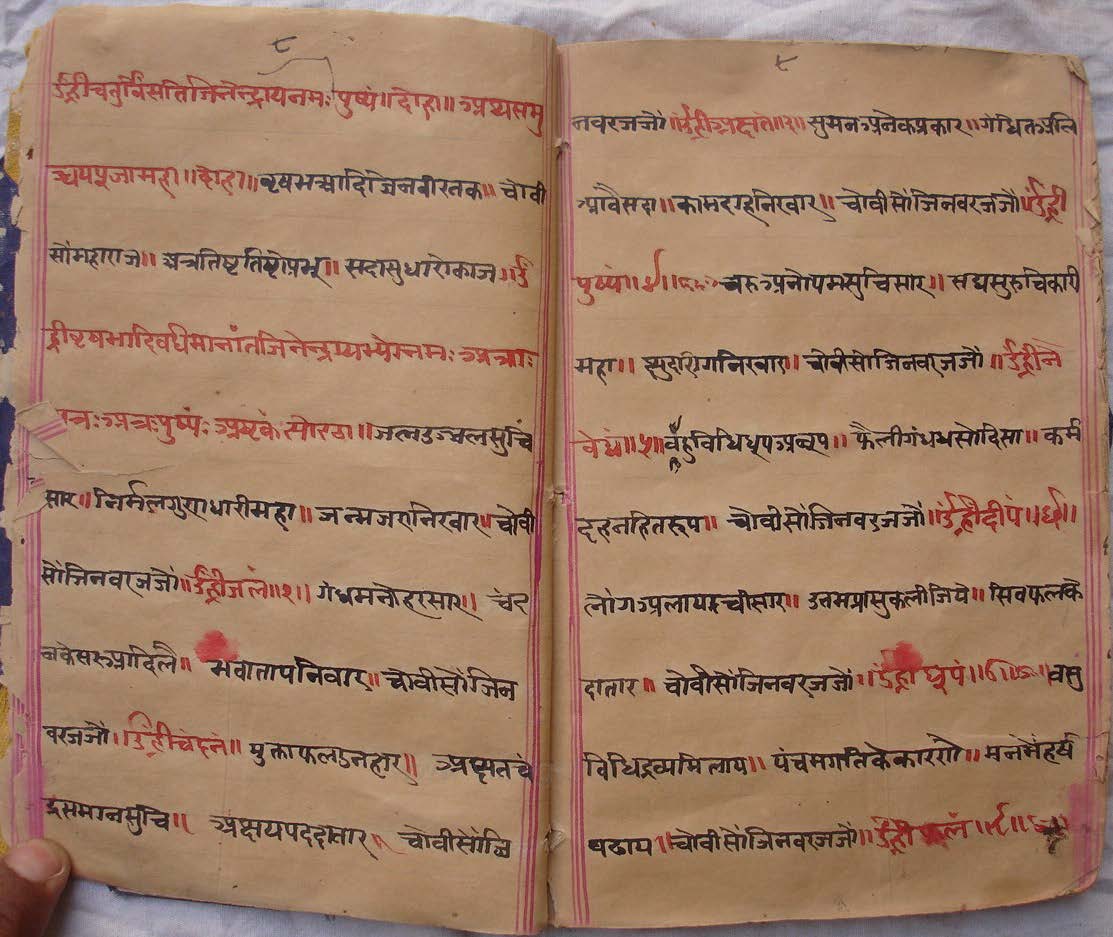 ८
उंह्रीचतुर्विंसतिजिनेन्द्रायनमः पुष्यं॥ दोहा॥ अथसमु
च्चयपूजामहा॥ दोहा॥ वृषभआदिजिनवीरतक॥ चोवी
सौंमहाराज॥ अत्रतिष्टतिष्टोप्रभू॥ सदासुधारोकाज॥ उं
ह्रीवृषभादिवर्धमानांतजिनेन्द्रायभ्योनमः अत्राः
अत्रः अत्रः पुष्पंः अष्टकं सोरठा॥ जलउज्वलसुचि
सार॥ निर्मलगुणधारीमहा॥ जन्मजरानिरवार॥ चोवी
सौंजिनवरजजौं॥ उंह्रींजलं॥१॥ गंधमनोहरसार॥ चंद
नकेसरआदिलै॥ भवातापनिवार॥ चोवीसौंजिन
वरजजौं॥ उंह्रींचंदनं॥ मुक्ताफलउनहार॥ अक्षतचं
द्रसमानसुचि॥ अक्षयपददातार॥ चोवीसौंजि
८
नवरजजौं॥ उंह्रीअक्षतं॥३॥ सुमनअनेकप्रकार॥ गंधितअलि
आवैसदा॥ कामदाहनिरवार॥ चोवीसौंजिनवरजजौं॥ उंह्री
पुष्पं॥४॥ चरुअनोपमसुचिसार॥ सद्यसुरुचिकारी
महा॥ क्षुदारोगनिरवार॥ चोवीसौंजिनवरजजौं॥ उंह्रींनै
वेद्यं॥५॥ वहुविधिधूपअनूप॥ फैलीगंधधसोदिसा॥ कर्म
दहनहितरूप॥ चोवीसौंजिनवरजजौं॥ उंह्रींदीपं॥६॥
लौंगअलायचीसार॥ उत्तमप्रासुकलीजिये॥ सिवफलकै
दातार॥ चोवीसौंजिनवरजजौं॥ उंह्रीं धूपं॥ वसु
विधिद्रव्यमिलाय॥ पंचमगतिकेकारणै॥ मनमैंहर्ष
वढाय॥ चोवीसौंजिनवरजजौं॥ उंह्रीं फलं॥